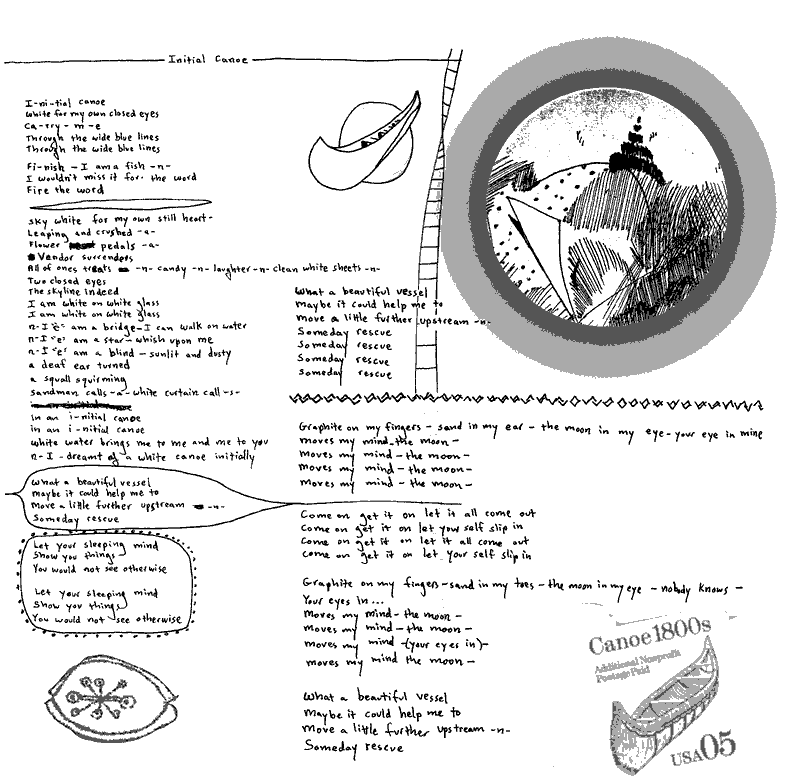 Initial Canoe
I-ni-tial canoe
White for my own closed eyes
Ca-rry-m-e
Through the wide blue lines
Through the wide blue lines
Fi-nish - I am a fish -n-
I wouldn't miss it for the word
Fire the word
Sky white for my own still heart-
Leaping and crushed -a-
Flower pedals -a-
Vendor surrenders
All of ones treats -n- candy -n- laughter -n- clean white sheets -n-
Two closed eyes
The skyline indeed
I am white on white glass
I am white on white glass
n-I "e" am a bridge-I can walk on water
n-I "e" am a star-whish upon me
n-I "e" am a blind - sunlit and dusty
a deaf ear turned
a squall squirming
Sandman calls -a- white curtain call -s-
in an i-nitial canoe
in an i-nitial canoe
white water brings me to me and me to you
n-I-dreamt of a white canoe initially
What a beautiful vessel
maybe it could help me to
move a little further upstream -n-
Someday rescue
Let your sleeping mind
Show you things
You would not see otherwise
Let your sleeping mind
Show you things
You would not see otherwise
What a beautiful vessel
maybe it could help me to
move a little further upstream -n-
Someday rescue
Someday rescue
Someday rescue
Someday rescue
Graphite on my fingers - sand in my ear - the moon in my eye-your eye in mine
moves my mind-the moon-
moves my mind-the moon-
moves my mind-the moon-
moves my mind-the moon-
Come on get it on let it all come out
Come on get it on let your self slip in
Come on get it on let it all come out
Come on get it on let your self slip in
Graphite on my fingers-sand in my toes - the moon in my eye - nobody knows -
Your eyes in...
moves my mind-the moon-
moves my mind-the moon-
moves my mind -(your eyes in)-
moves my mind the moon-
What a beautiful vessel
Maybe it could help me to
move a little further upstream -n-
Someday rescue
Canoe 1800s
Additional Nonprofit
Postage Paid
USA 05